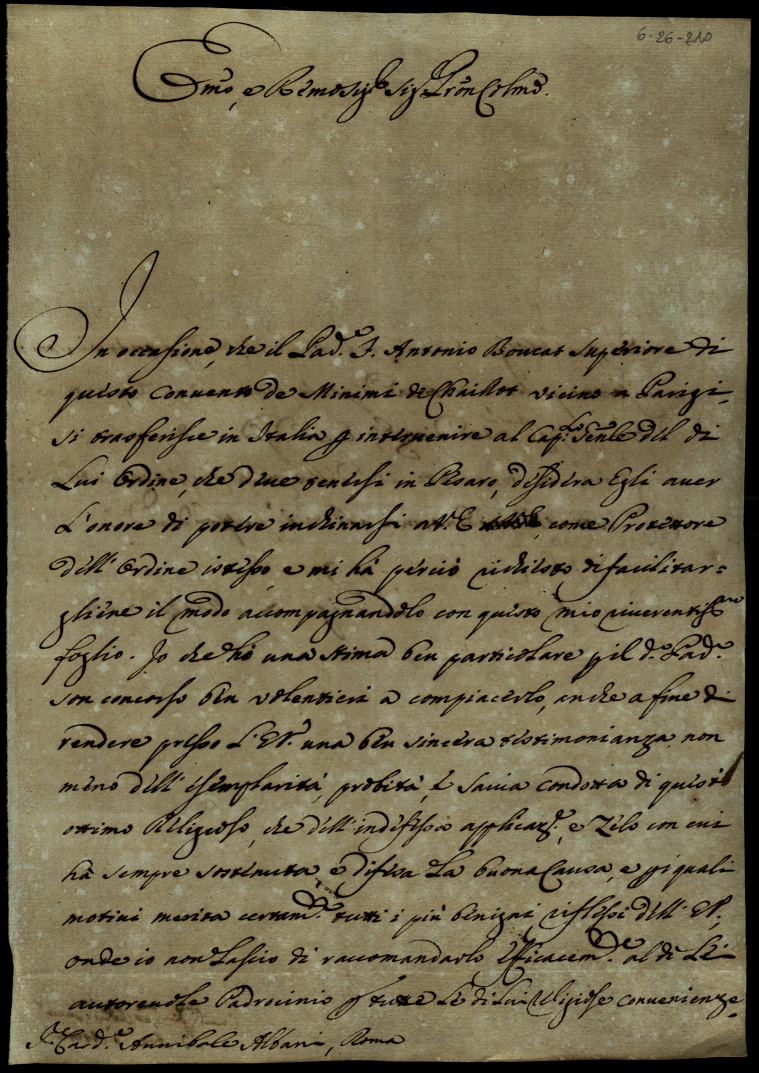 6-26-210
Emo, e Rẽmo Sig.r Sig. Prõn Colmo.
In occasione, che il Pad.e F. Antonio Boucat Superiore di
questo Convento de Minimi de Chaillot vicino a Parigi,
si trasferisce in Italia p intervenire al Cap.lo Gen̄le del di
Lui Ordine, che deve tenersi in Pesaro, desidera Egli aver
L'onore di potere inchinarsi a V.E. come Protettore
dell'Ordine istesso, e mi hà perciò richiesto di facilitar=
gliene il modo accompagnandolo con questo mio riverentiss.mo
foglio. Io che hò una stima ben particolare p il d.o Pad.e
son concorso ben volentieri a compiacerlo, anche a fine di
rendere presso L'E.V. una ben sincera testimonianza non
meno dell'esemplarità, probità, e savia condotta di questo
ottimo Religioso, che dell'indefessa applicaz.e, e Zelo con cui
hà sempre sostenuta, e difesa La buona Causa, e p i quali
motivi merita certam.te tutti i più benigni riflessi dell'E.V.,
onde io non Lascio di raccomandarlo efficacem.te al di Lei
autorevole Padrocinio p tutte Le di Lui Religiose convenienze.
S.r Card.e Annibale Albani, Roma